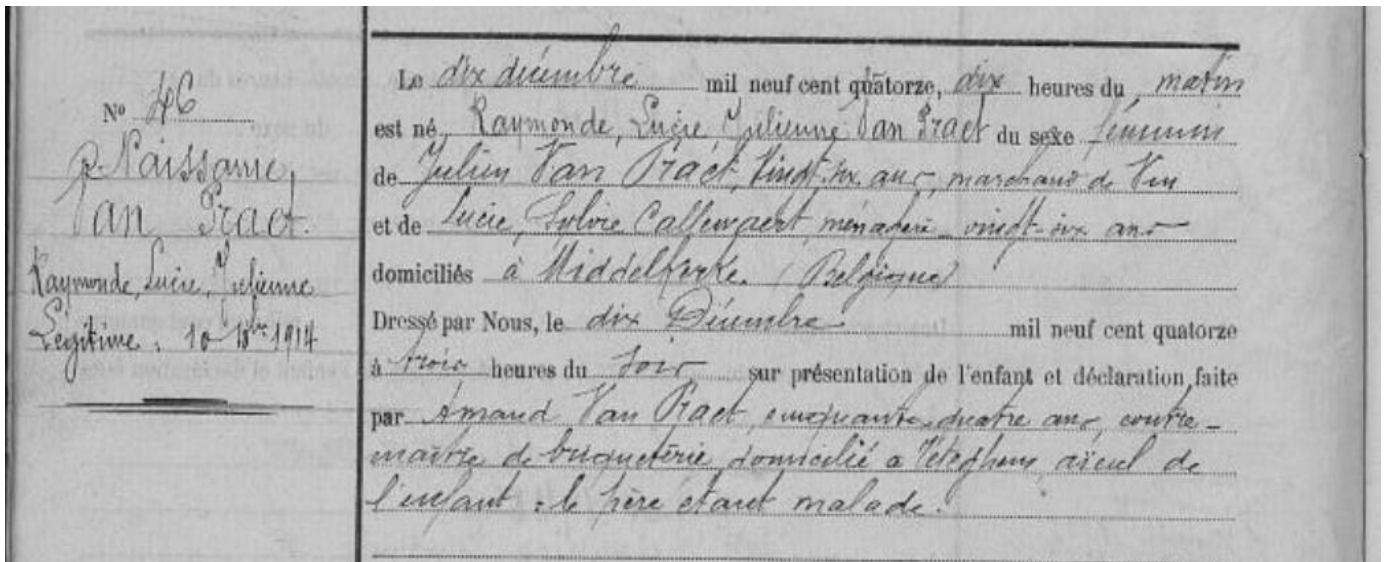 Nº 46
Naissance,
Van Praet.
Raymonde, Lucie, Julienne
Légitime. 10 Xbre 1914
Le dix décembre mil neuf cent quatorze, dix heures du matin
est né Raymonde, Lucie, Julienne Van Praet du sexe féminin
de Julien Van Praet, vingt-six ans, marchand de vin
et de Lucie, Sylvie Callewaert, ménagère vingt-six ans
domiciliés à Middelkerke. (Belgique)
Dressé par Nous, le dix Décembre mil neuf cent quatorze
à trois heures du soir sur présentation de l'enfant et déclaration faite
par Amand Van Praet, cinquante-quatre ans, contre-
maître de briqueterie, domicilié à Téteghem, aïeul de
l'enfant, le père étant malade.